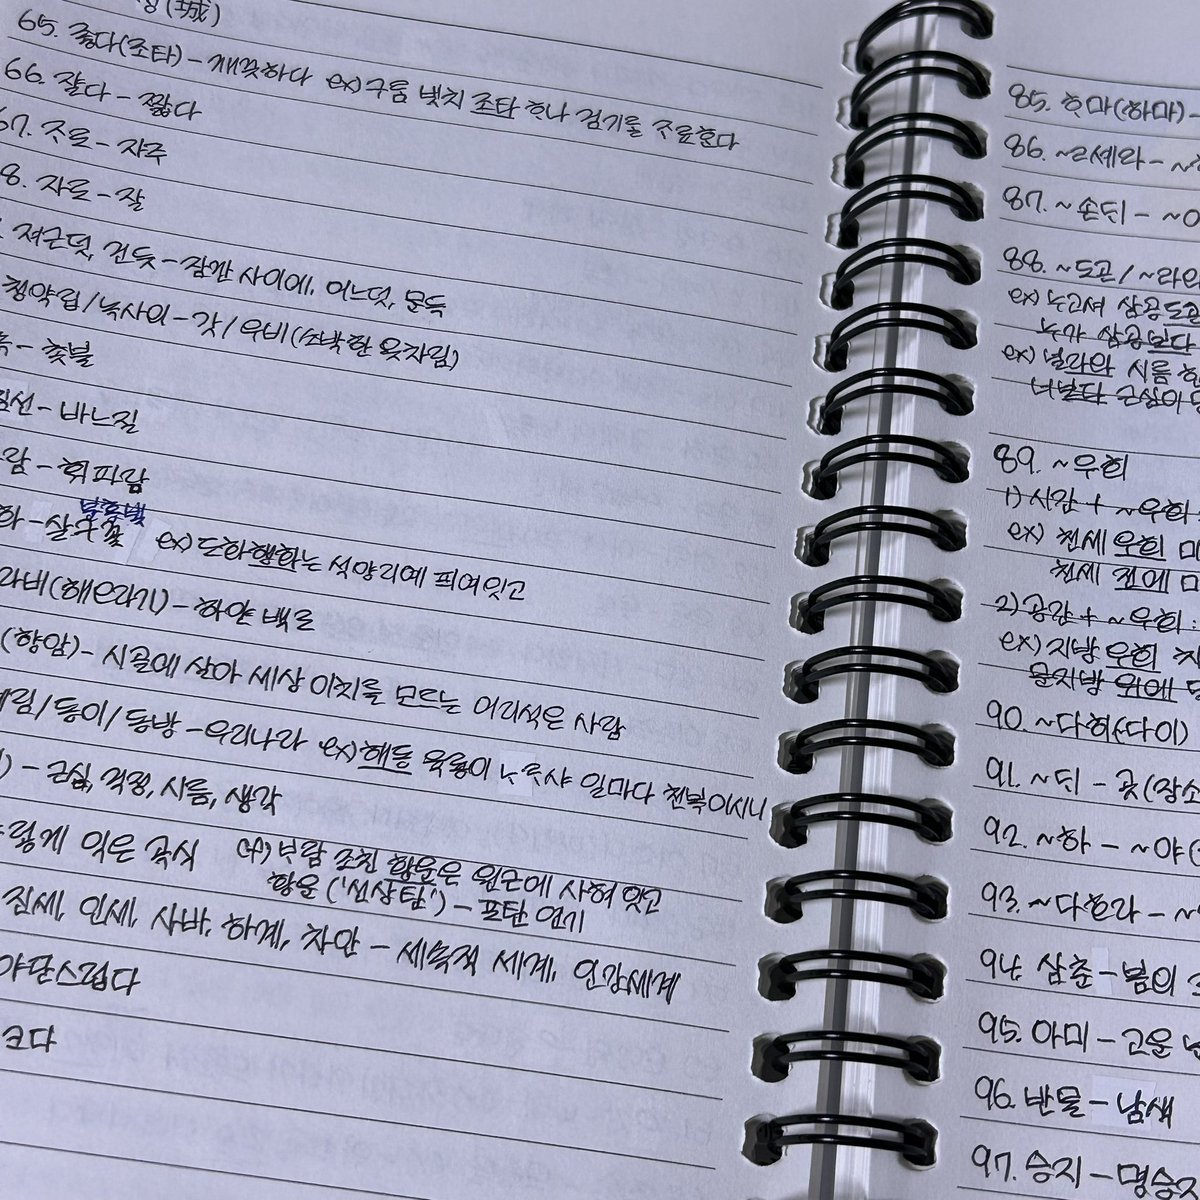 (城)
65. 죻다(조타) - 깨끗하다 ex) 구름 빗치 조타 하나 검기를 자로한다
66. 쟐다 - 짧다
67. 자로 - 자주
8. 자로 - 잘
져근덧, 건듯 - 잠깐 사이에, 어느덧, 문득
청약립/녹사의 - 갓/우비(소박한 옷차림)
촉 - 촛불
침선 - 바느질
람 - 휘파람
붉은빛
화 - 살구꽃 ex) 도화행화는 석양리예 퓌여잇고
라비(해오라기) - 하얀 백로
(향암) - 시골에 살아 세상 이치를 모르는 어리석은 사람
림/동이/동방 - 우리나라 ex) 해동 육룡이 ᄂᆞᄅᆞ샤 일마다 천복이시니
) - 근심, 걱정, 시름, 생각
렇게 익은 곡식 cf) ᄇᆞ람 조친 황운은 원근에 사혀 잇고
황운('선상탄') - 포탄 연기
진세, 인세, 사바, 하계, 차안 - 세속적 세계, 인간세계
야단스럽다
크다
85. ᄒᆞ마(하마) -
86. ~ㄹ셰라 - ~
87. ~손ᄃᆡ - ~
88. ~도곤/~라와
ex) 누고셔 삼공도곤
누가 삼공보다
ex) 널라와 시름 한
너보다 근심이
89. ~우희
1) 시간 + ~우희
ex) 천세 우희 미
천세 전에 미
2) 공간 + ~우희:
ex) 지방 우희 치
문지방 위에
90. ~다히(다이)
91. ~ᄃᆡ - 곳(장소
92. ~하 - ~야(
93. ~다호라 - ~
94. 삼춘 - 봄의
95. 아미 - 고운
96. 반물 - 남색
97. 승지 - 명승지